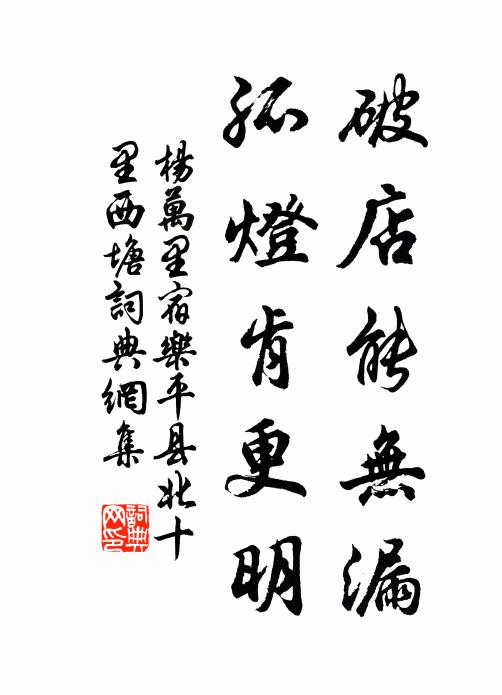 破店能無漏
孤燈肯更明
楊萬里宿樂平县北十
里西塘詞典網集
詞典
网印